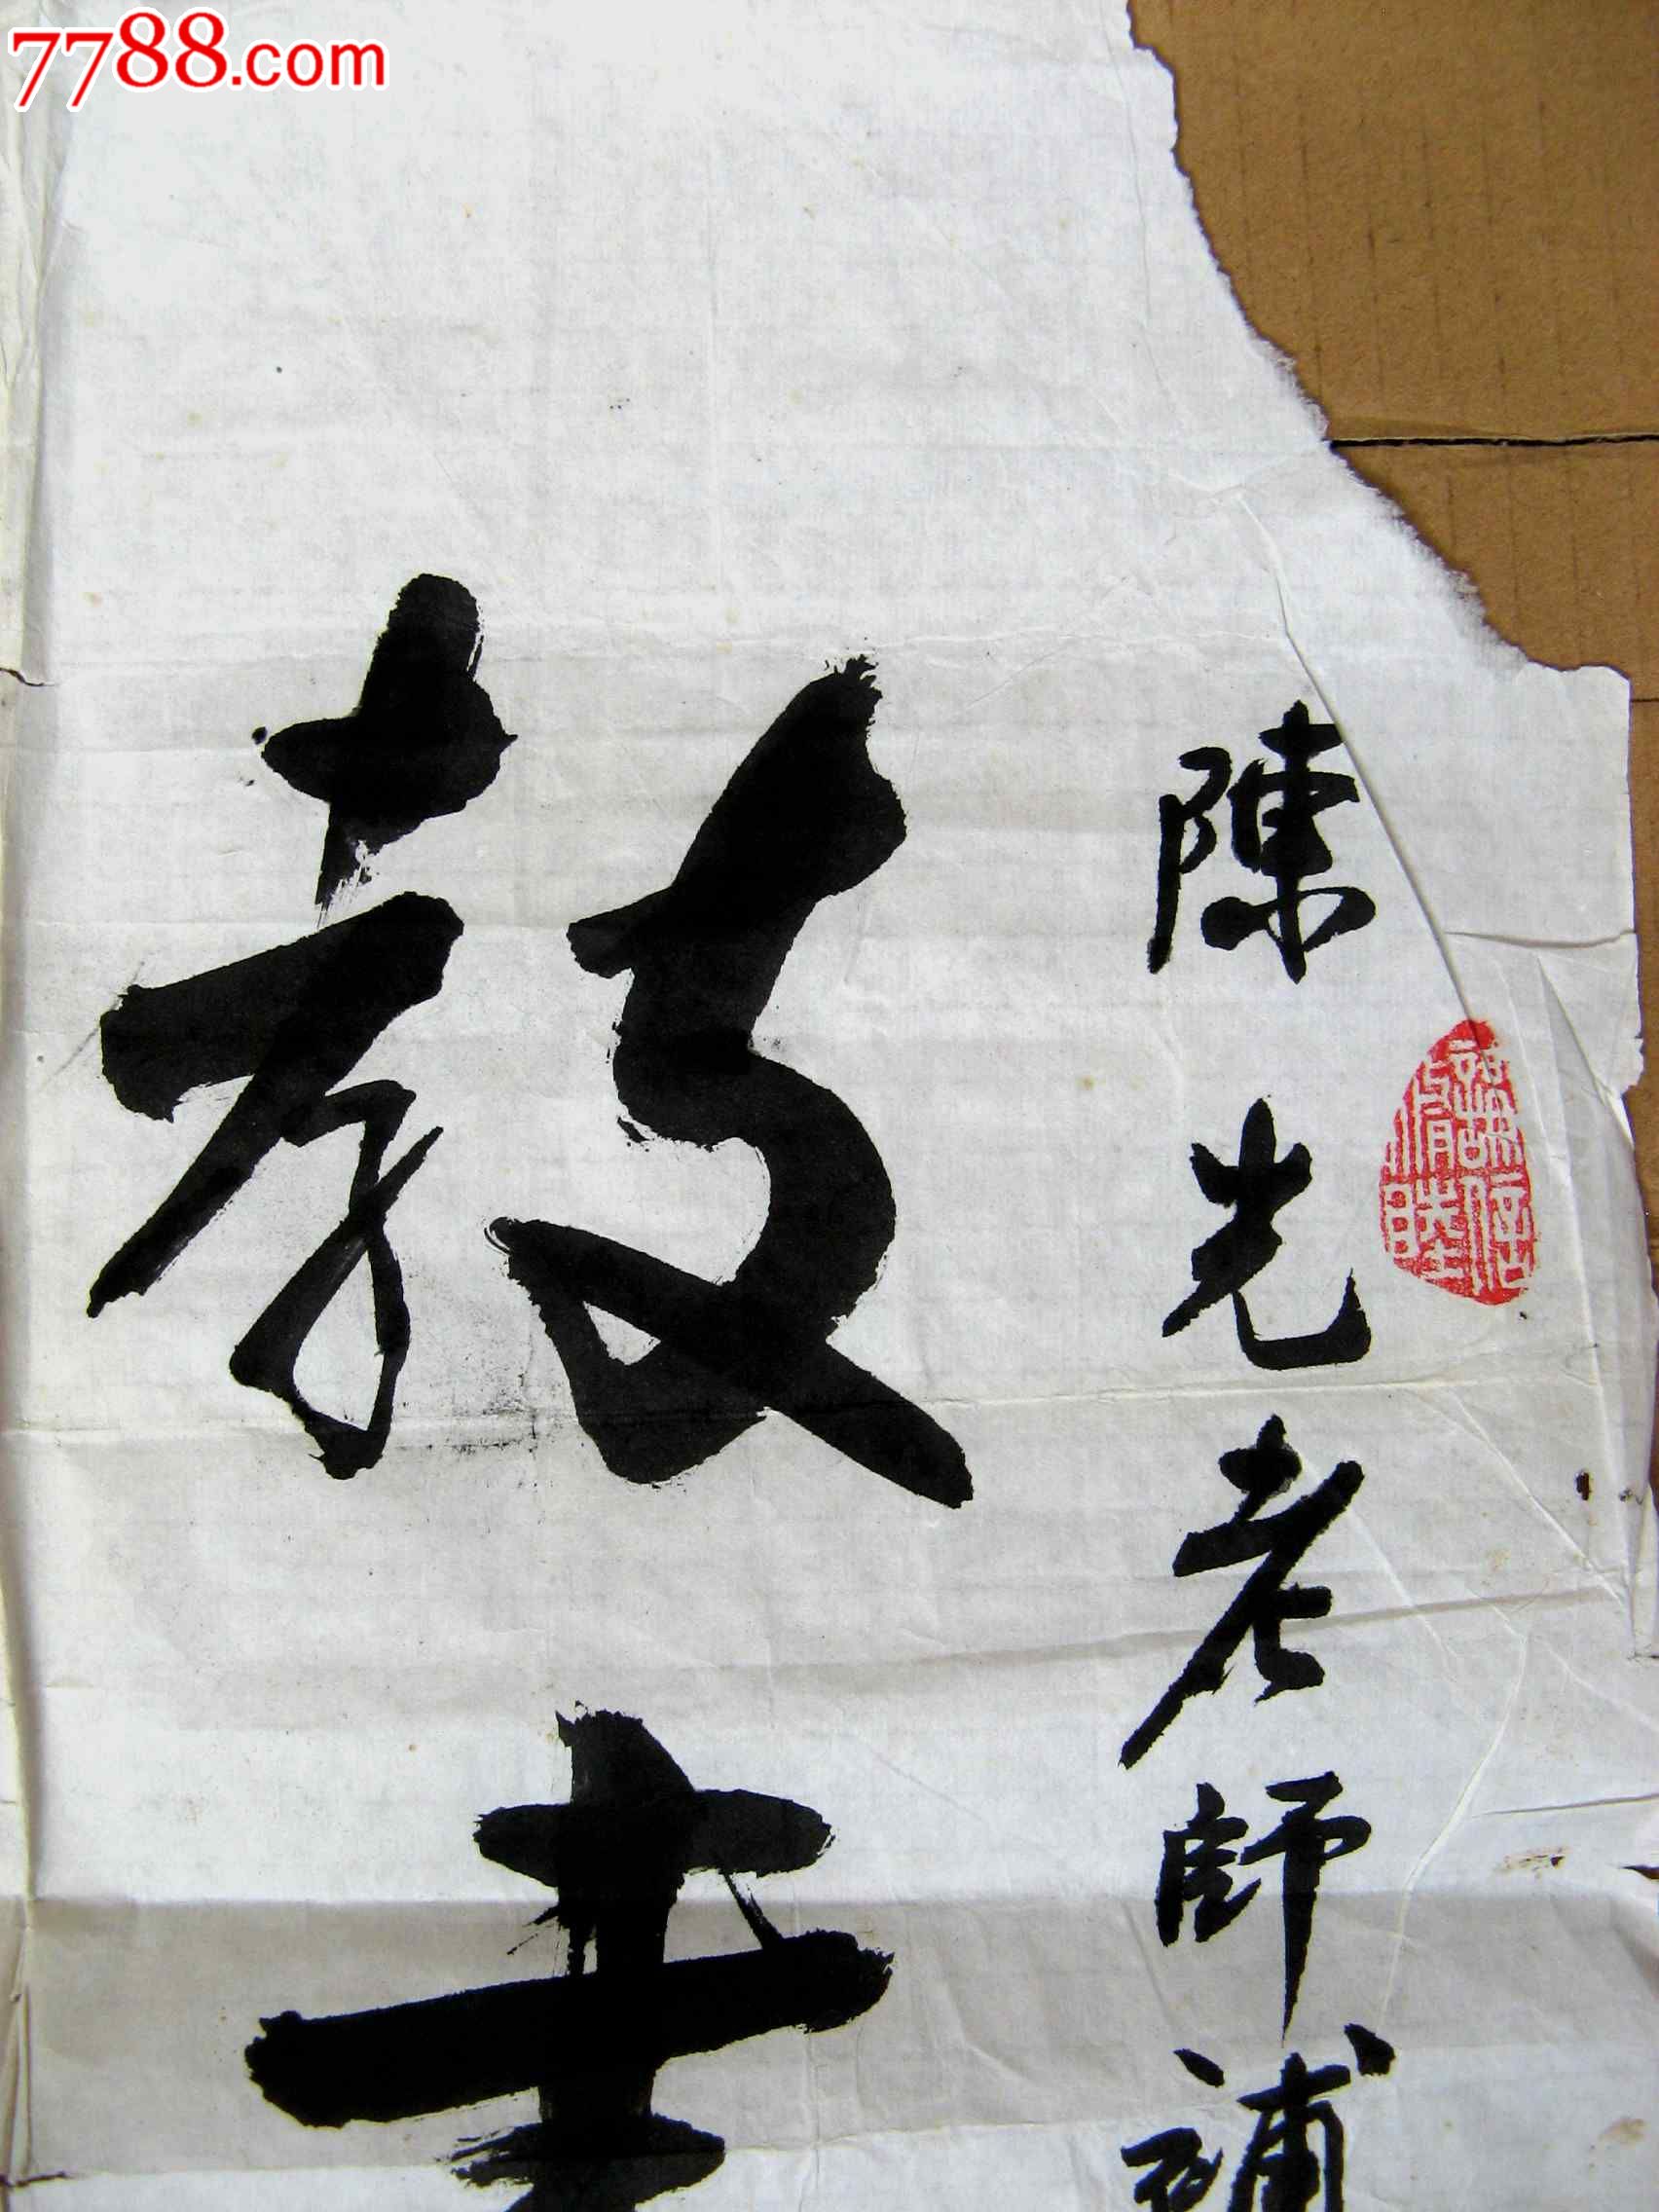 7788.com
陳光老師補
教書